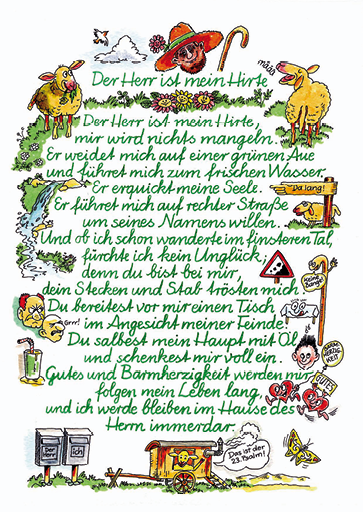 määä
Der Herr ist mein Hirte
Der Herr ist mein Hirte,
mir wird nichts mangeln.
Er weidet mich auf einer grünen Aue
und führet mich zum frischen Wasser.
Er erquickt meine Seele.
Da lang!
Er führet mich auf rechter Straße
um seines Namens willen.
Und ob ich schon wanderte im finsteren Tal,
fürchte ich kein Unglück;
denn du bist bei mir,
Keine Bange!
dein Stecken und Stab trösten mich.
Du bereitest vor mir einen Tisch
Grrr!
im Angesicht meiner Feinde.
Du salbest mein Haupt mit Öl
und schenkest mir voll ein.
Gutes und Barmherzigkeit werden mir
GUTES
folgen mein Leben lang,
und ich werde bleiben im Hause des
Herrn immerdar.
Der Herr
ich
Das ist der
23. Psalm!